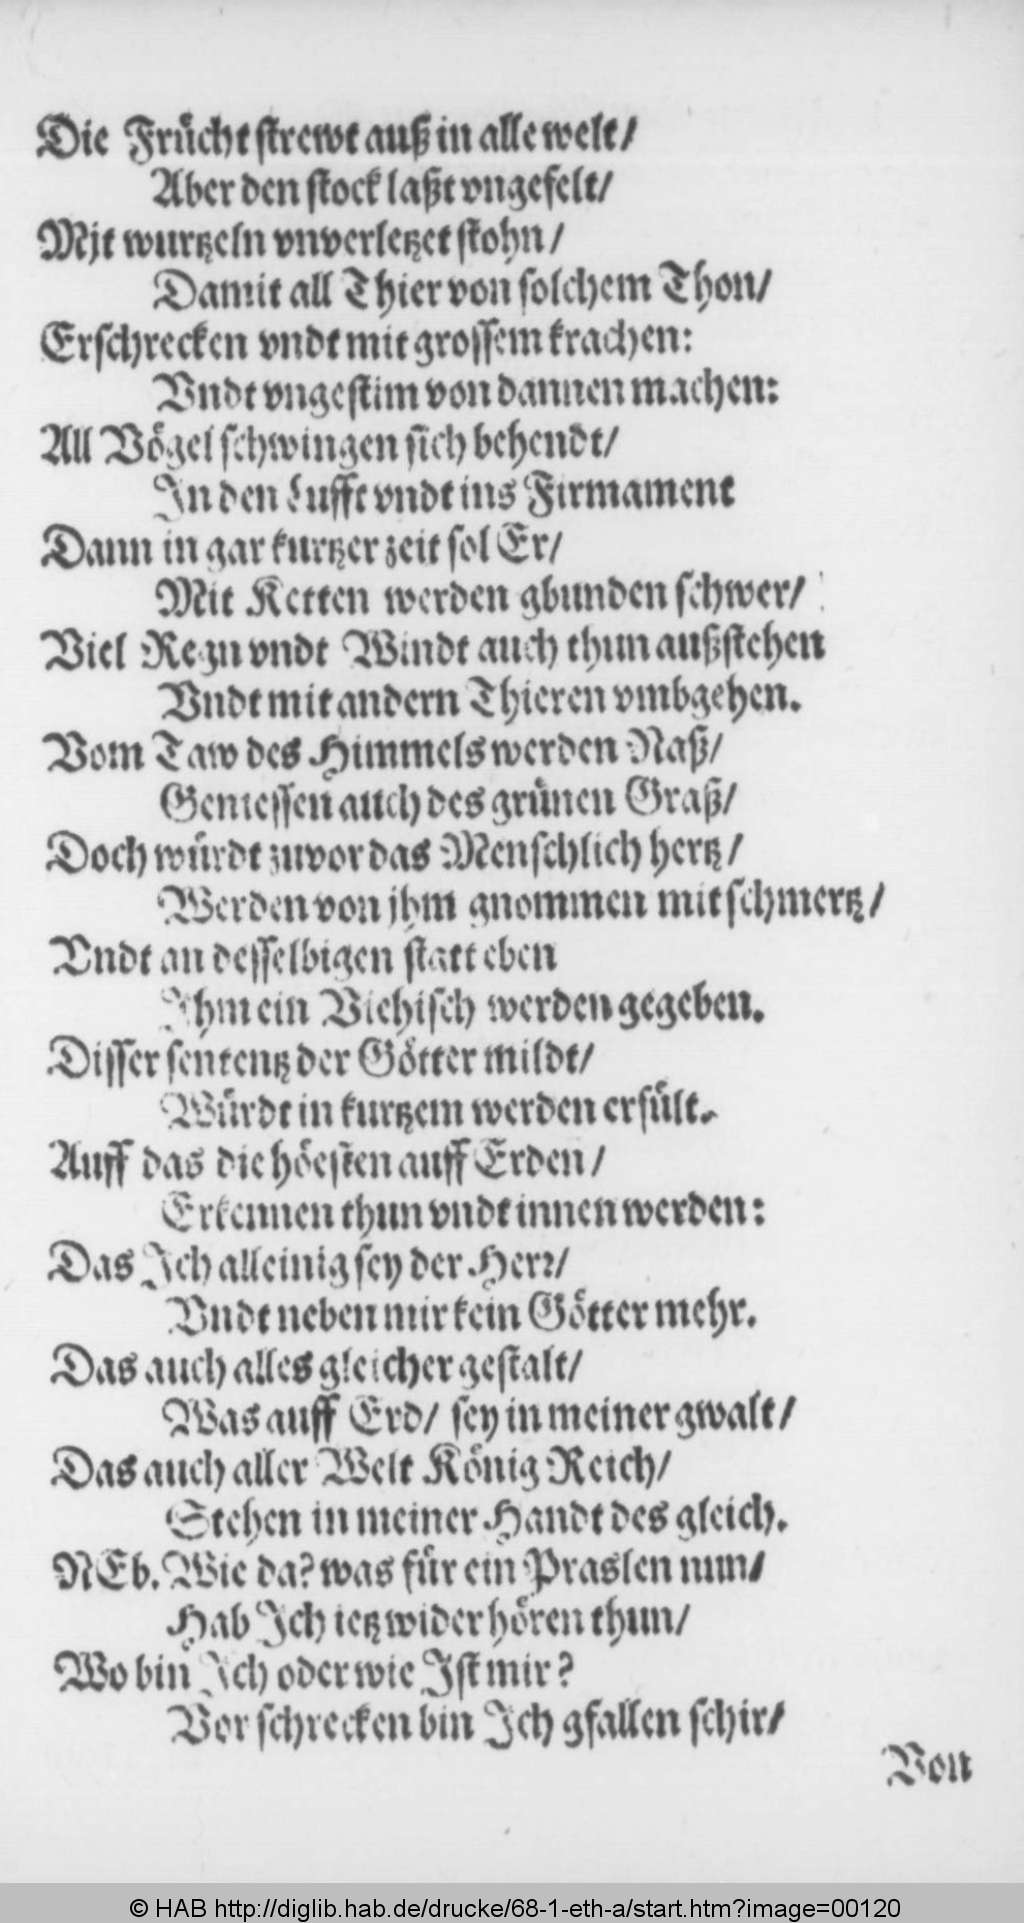 Die Frücht strewt auß in alle welt/
Aber den stock laßt vngefelt/
Mit wurtzeln vnverletzet stohn/
Damit all Thier von solchem Thon/
Erschrecken vndt mit grossem krachen:
Vndt vngestim von dannen machen:
All Vögel schwingen sich behendt/
In den Lufft vndt ins Firmament
Dann in gar kurtzer zeit sol Er/
Mit Ketten werden gbunden schwer/
Viel Regn vndt Windt auch thun außstehen
Vndt mit andern Thieren vmbgehen.
Vom Taw des Himmels werden Naß/
Geniessen auch des grünen Graß/
Doch würdt zuvor das Menschlich hertz/
Werden von jhm gnommen mit schmertz/
Vndt an desselbigen statt eben
Ihm ein Viehisch werden gegeben.
Disser sententz der Götter mildt/
Würdt in kurtzem werden erfült.
Auff das die höesten auff Erden/
Erkennen thun vndt innen werden:
Das Ich alleinig sey der Herr/
Vndt neben mir kein Götter mehr.
Das auch alles gleicher gestalt/
Was auff Erd/ sey in meiner gwalt/
Das auch aller Welt König Reich/
Stehen in meiner Handt des gleich.
NEb. Wie da? was für ein Praslen nun/
Hab Ich ietz wider hören thun/
Wo bin Ich oder wie Ist mir?
Vor schrecken bin Ich gfallen schir/
Von
© HAB http://diglib.hab.de/drucke/68-1-eth-a/start.htm?image=00120